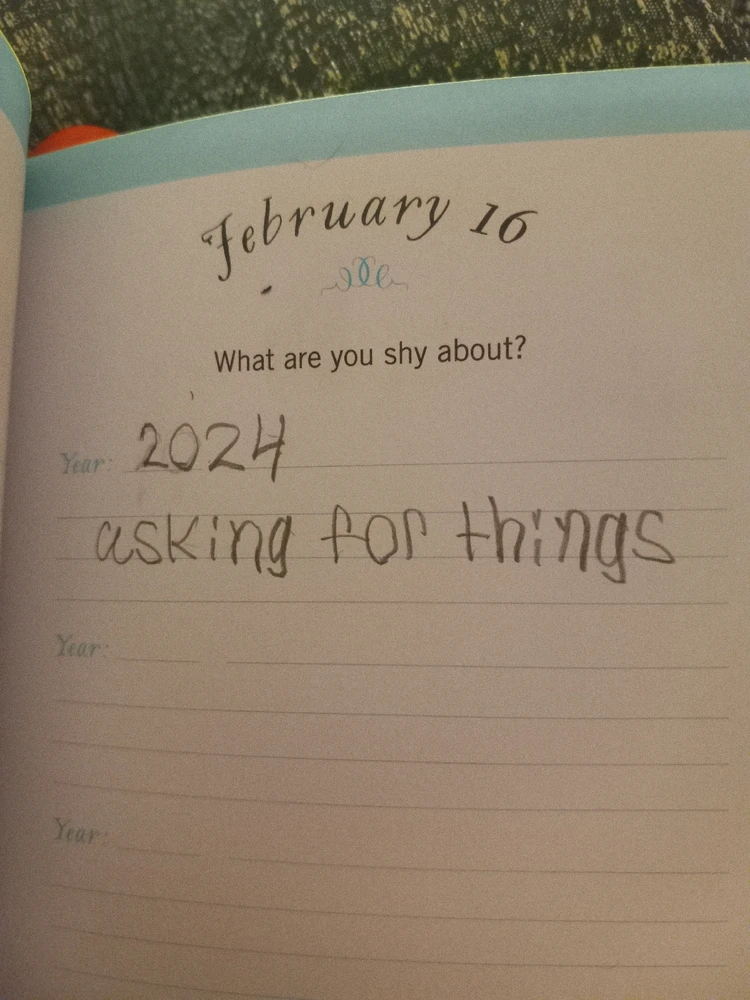 February 16
What are you shy about?
Year: 2024
asking for things
Year:
Year: